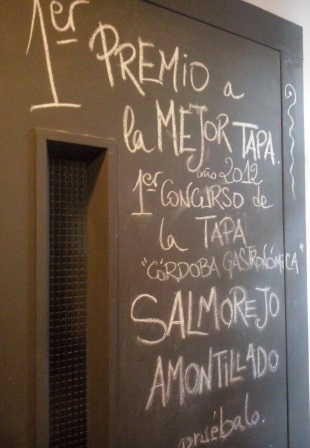 1er PREMIO a
la MEJOR TAPA.
año 2012
1er CONCURSO de
la TAPA
"CÓRDOBA GASTRONÓMICA"
SALMOREJO
AMONTILLADO
pruébalo.